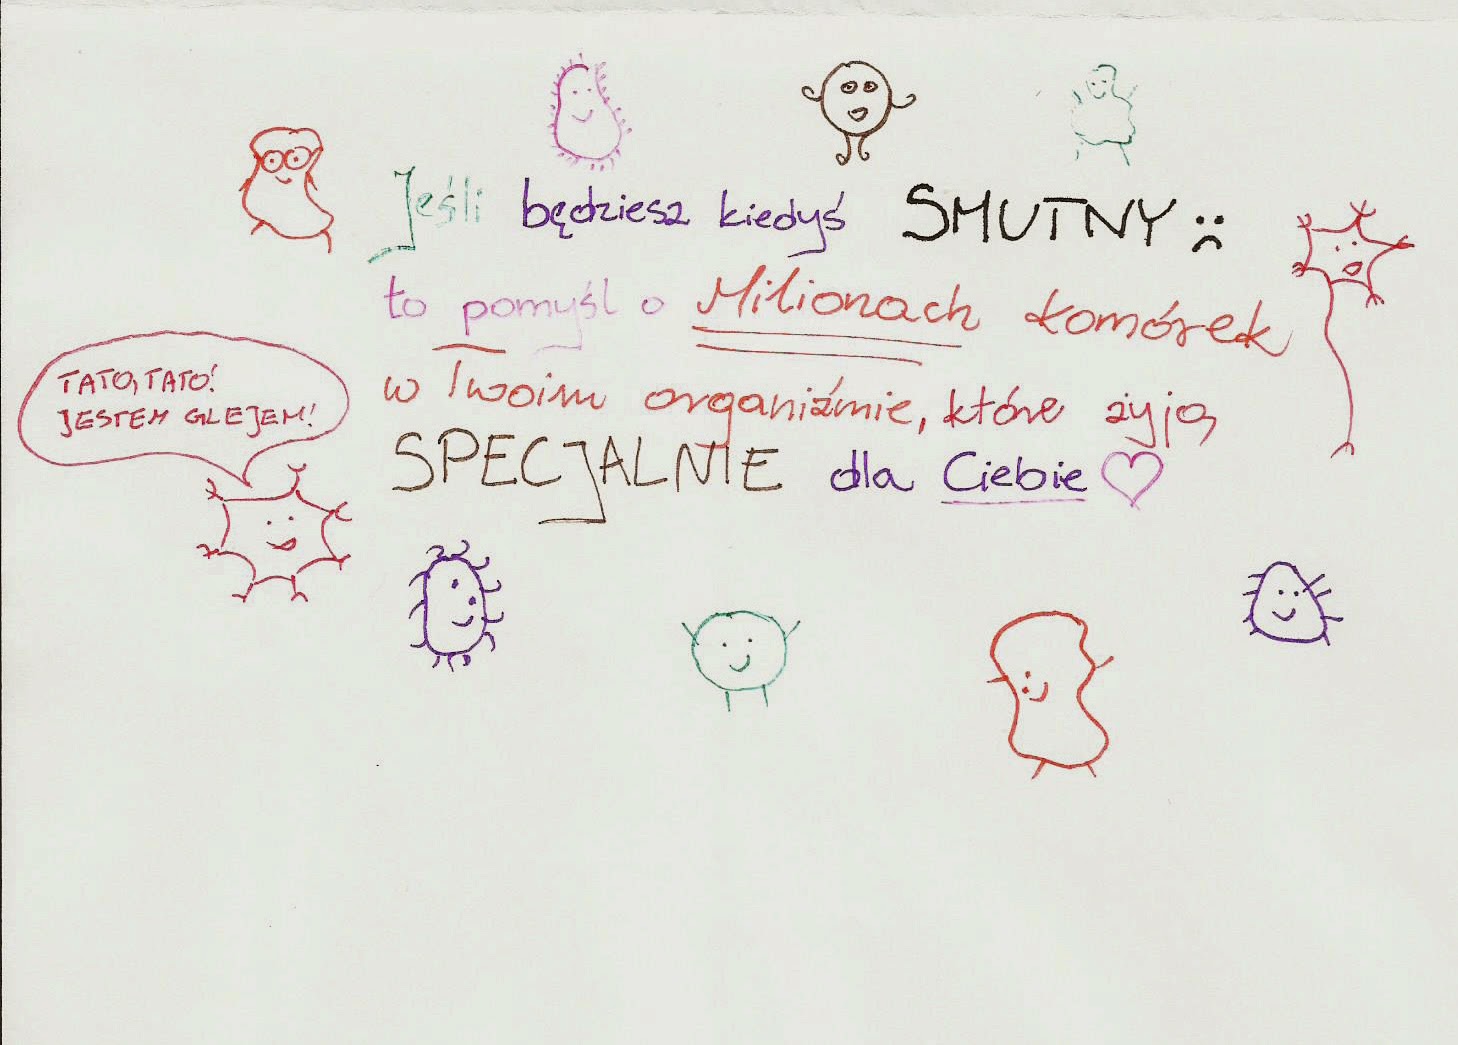 Jeśli będziesz kiedyś SMUTNY :(
to pomyśl o Milionach komórek
TATO, TATO!
JESTEM GLEJEM!
w Twoim organiźmie, które żyją
SPECJALNIE dla Ciebie ♡